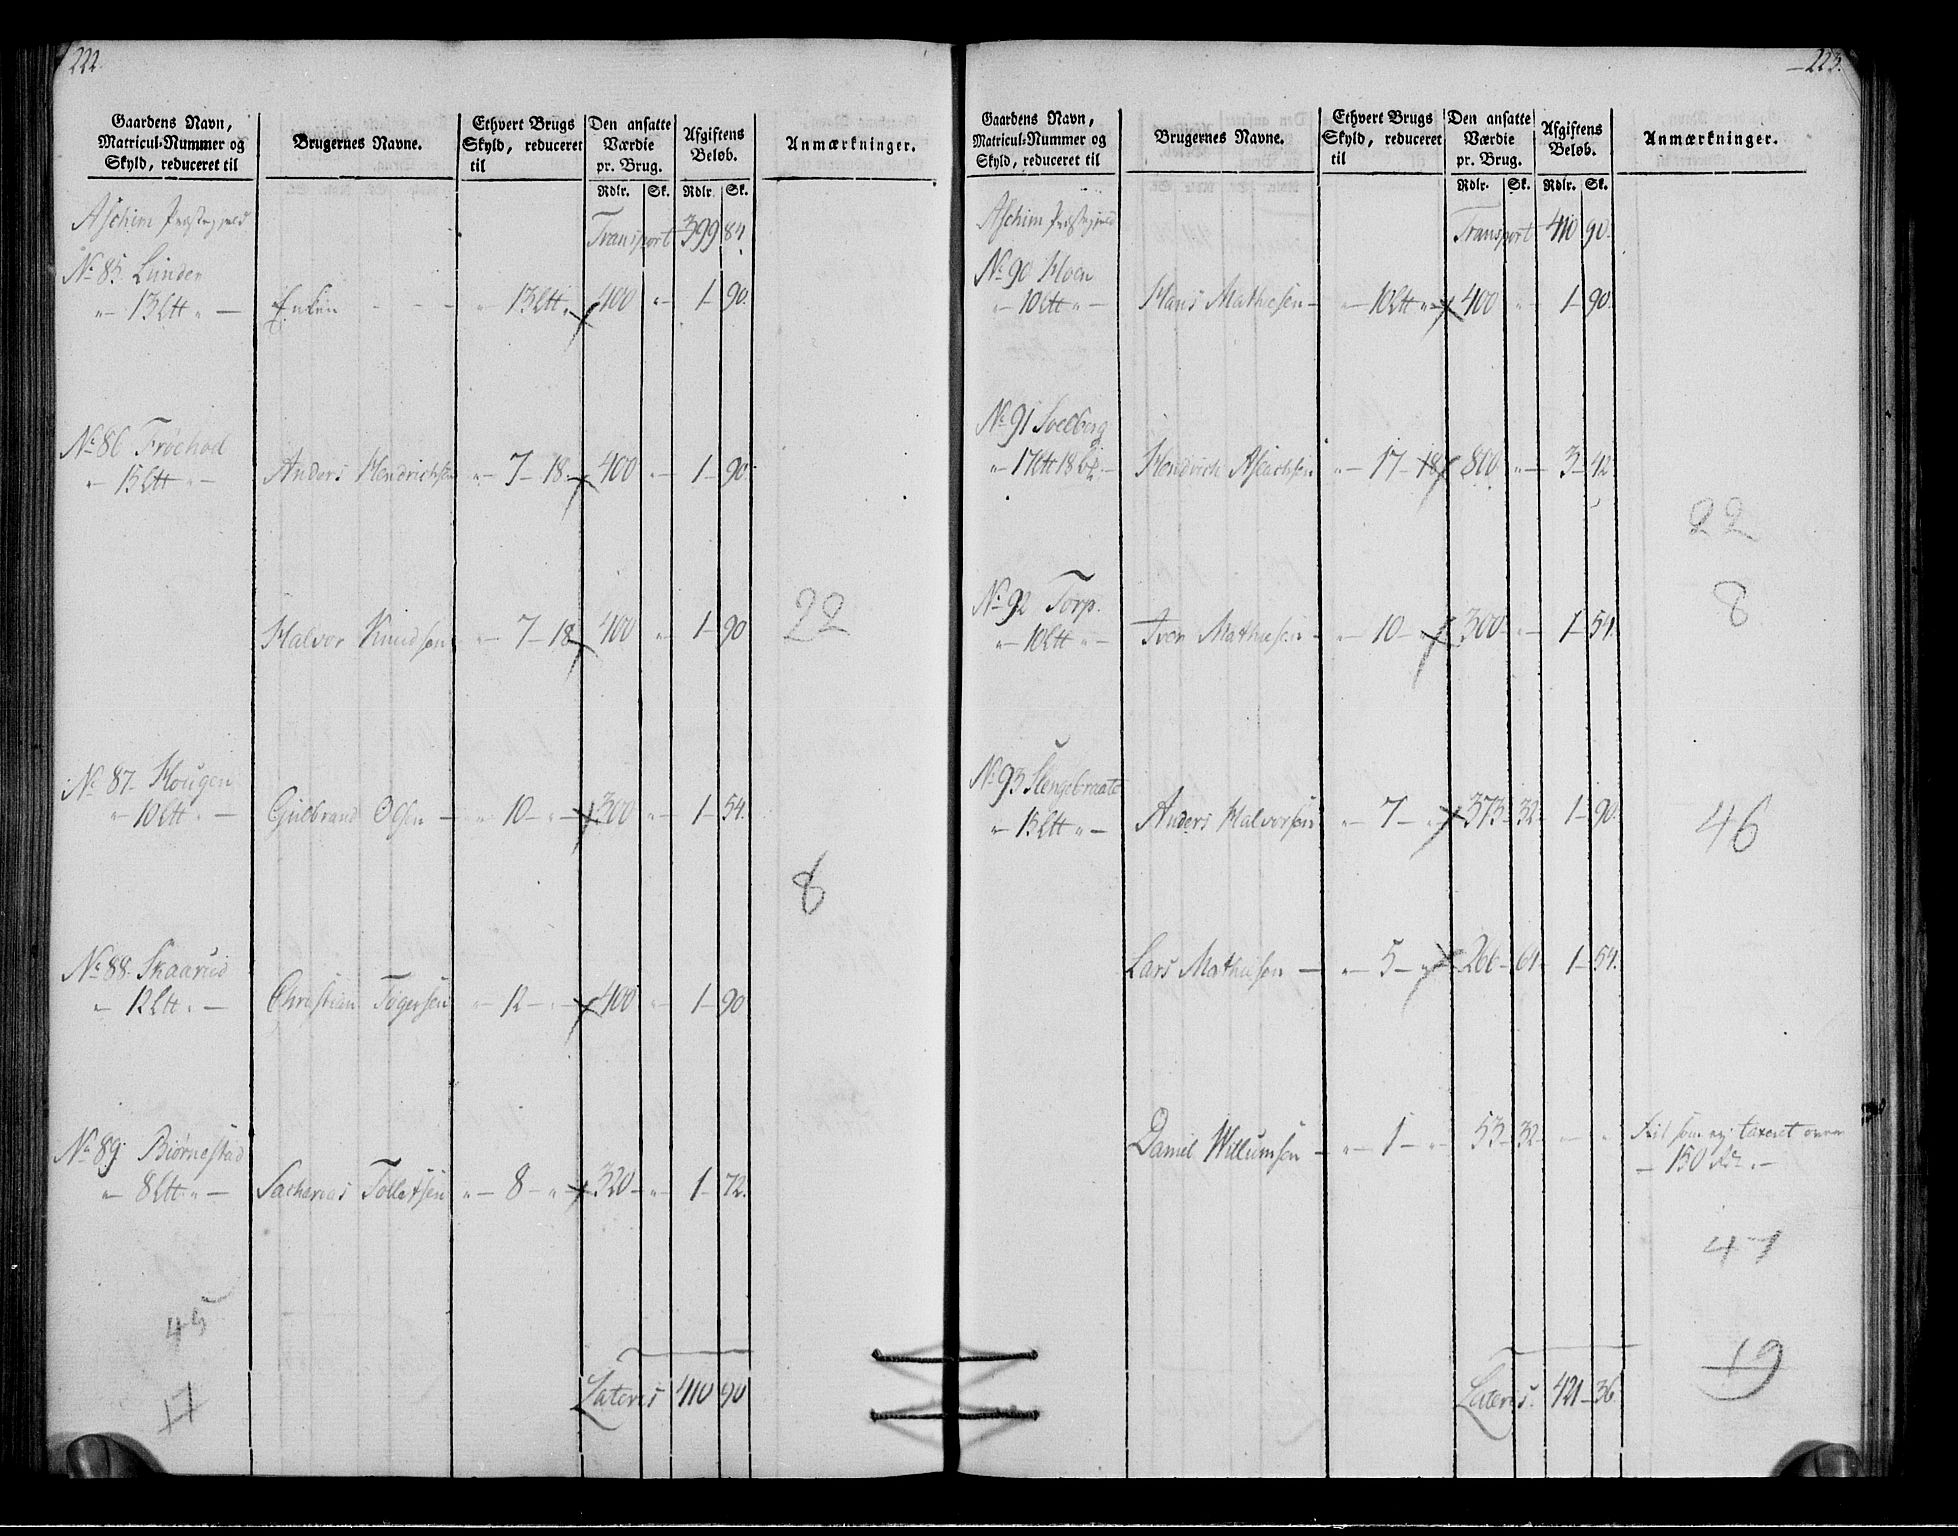 222.
Gaardens Navn, Matricul-Nummer og Skyld, reduceret til | Brugernes Navne. | Ethvert Brugs Skyld, reduceret til | Den ansatte Værdie pr. Brug. Rdlr. Sk. | Afgiftens Beløb. Rdlr. Sk. | Anmærkninger.
Aschim Præstegjeld Transport 399 84
No 85 Lunder
" 13 Ltt " — Enken - - - " 13 Ltt " 400 " 1 - 90.
No 86 Frøchod
" 15 Ltt " — Anders Hendrichsen " 7 - 18 - 400 " 1 - 90.
Halvor Knudsen " 7 - 18 - 400 " 1 - 90
22
No 87 - Hougen
" 10 Ltt " — Gulbrand Olsen — " 10 - " - 300 " 1 - 54.
8
No 88. Skaarud
" 12 Ltt " — Christian Tøgersen " 12 - " - 400 " 1 - 90
No 89 Biørnestad
" 8 Ltt " — Sacharias Tollefsen " 8 - " - 320 - " 1 - 72.
45
17
Lateris 410 90
223.
Gaardens Navn, Matricul-Nummer og Skyld, reduceret til | Brugernes Navne. | Ethvert Brugs Skyld, reduceret til | Den ansatte Værdie pr. Brug. Rdlr. Sk. | Afgiftens Beløb. Rdlr. Sk. | Anmærkninger.
Aschim Præstegjeld Transport 410 90.
No 90 Hoen
" 10 Ltt " — Hans Mathiesen - " 10 Ltt " 400 " 1 - 90.
No 91 Soelberg
" 17 Ltt 18 — Hendrich " 17 - 18 800 " 3 - 42
22
No 92 Torp.
" 10 Ltt " — Iver Mathiesen - " 10 - 300 - " 1 - 54.
8
No 93 Slengebraate
" 13 Ltt " — Anders Halvorsen " 7 - " 373 - 32 - 1 - 90.
46
Lars Mathisen — " 5 - " 266 - 64 - 1 - 54.
Daniel Willumsen - " 1 - " 53 - 32 - - " Frit som ej taxeret over
— 150 Rdr. —
47
19
Lateris. 421 - 36.